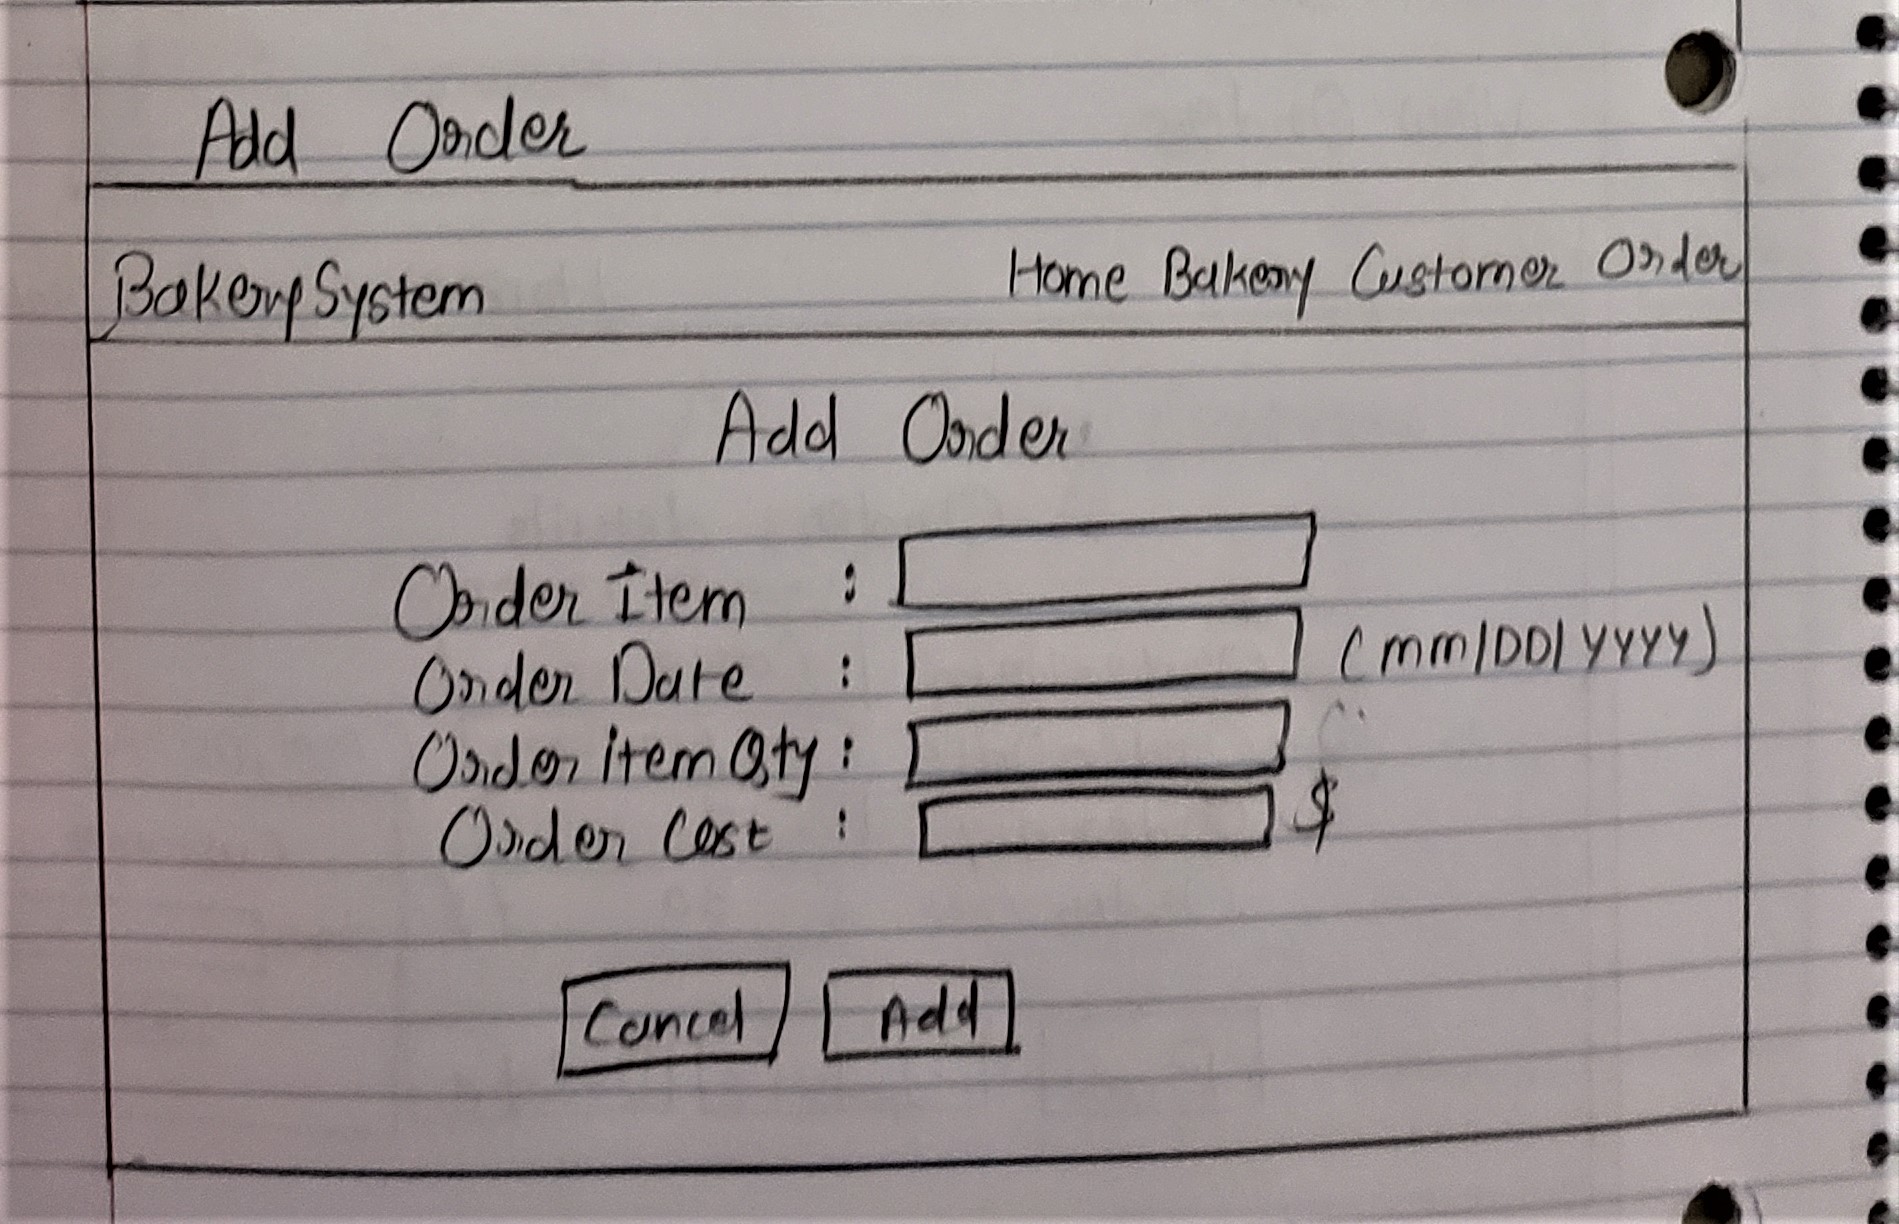 Add Order
BakerySystem Home Bakery Customer Order
Add Order
Order Item :
Order Date : (mm/DD/YYYY)
Order item Qty :
Order Cost : $
Cancel Add